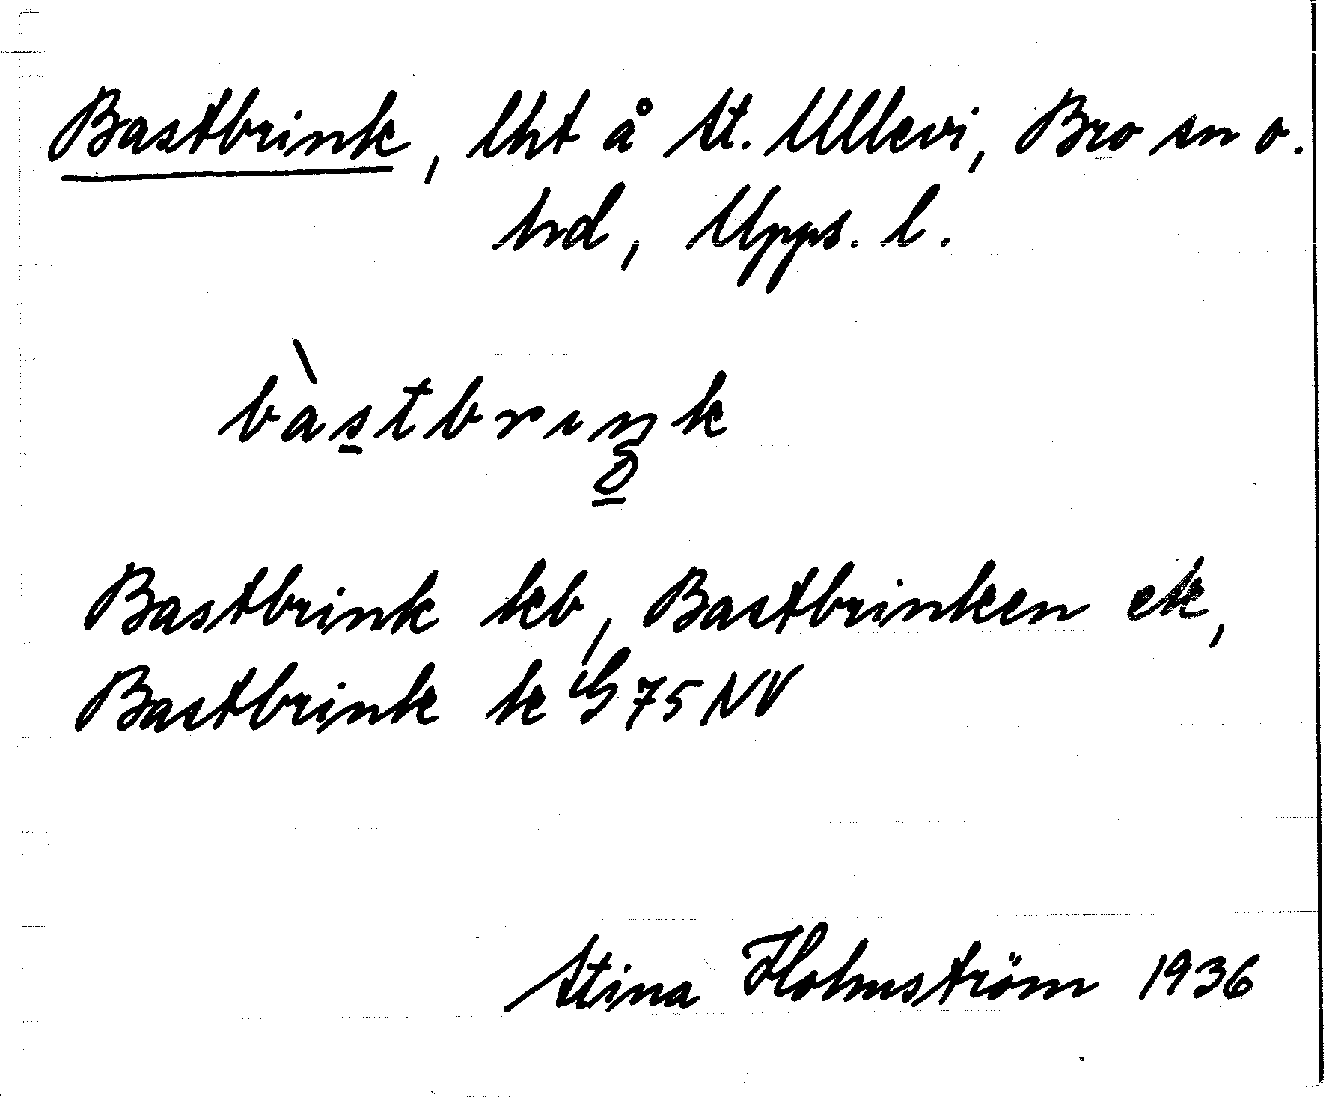 Bastbrink, lht å St. Ullevi, Bro sn o.
hd, Upps. l.
bàstbrıŋk
Bastbrink kb, Bastbrinken ek,
Bastbrink k G 75 NV
Stina Holmström 1936